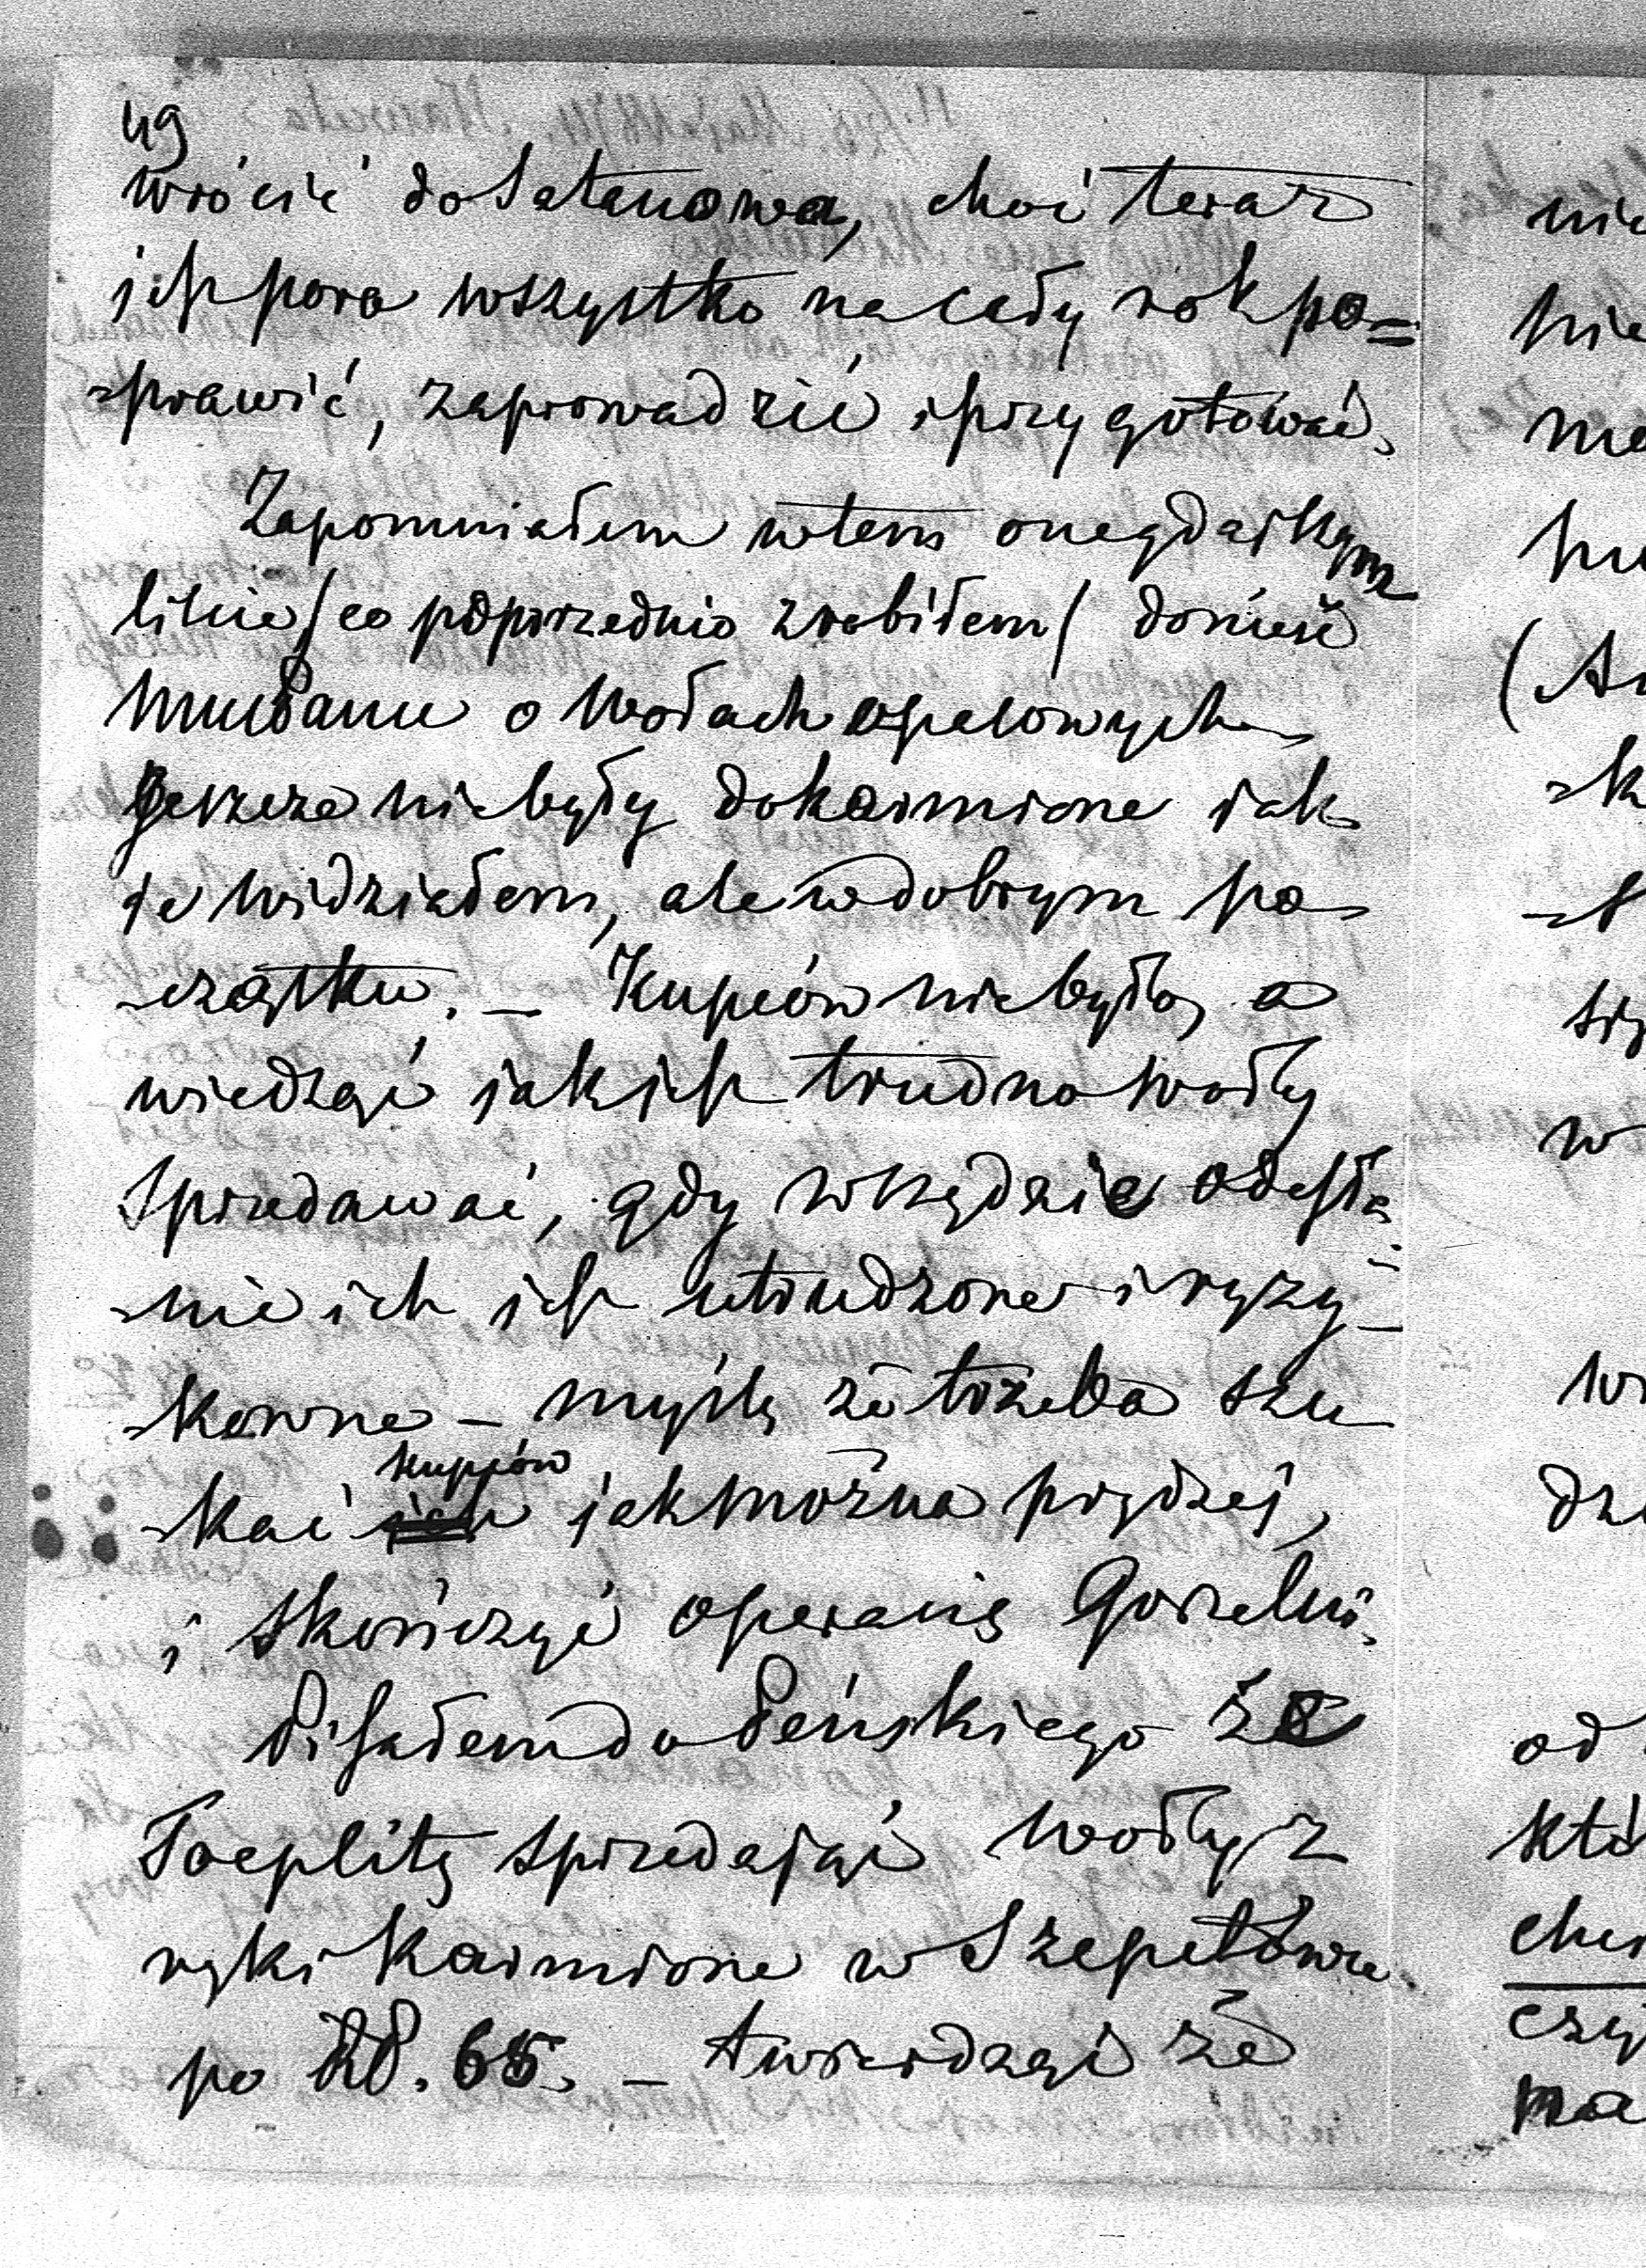 49
wrócić do Satanowa, choć teraz
jest pora wszystko na cały rok po=
-prawić, zaprowadzić i przygotować.
Zapomniałem w tem onegdajszym
liście /co poprzednio zrobiłem/ donieść
Mu Panu o wołach opasowych
Jeszcze nie były dokarmione jak
je widziałem, ale w dobrym po-
-rządku. — Kupców nie było, a
wiedząc jak jest trudno woły
sprzedawać, gdy wszędzie odesła=
-nie ich jest utrudzone i ryzy-
-kowne — myślę że trzeba szu-
-kać ich kupców jak można prędzej,
i skończyć operacię Gorzelni.
Pisałem do Peńskiego że
Toeplitz sprzedając woły z
ręki karmione w Szepetówce
po RS. 65. — twierdząc że
nie
nie
(
-k
w
od
któ
czy